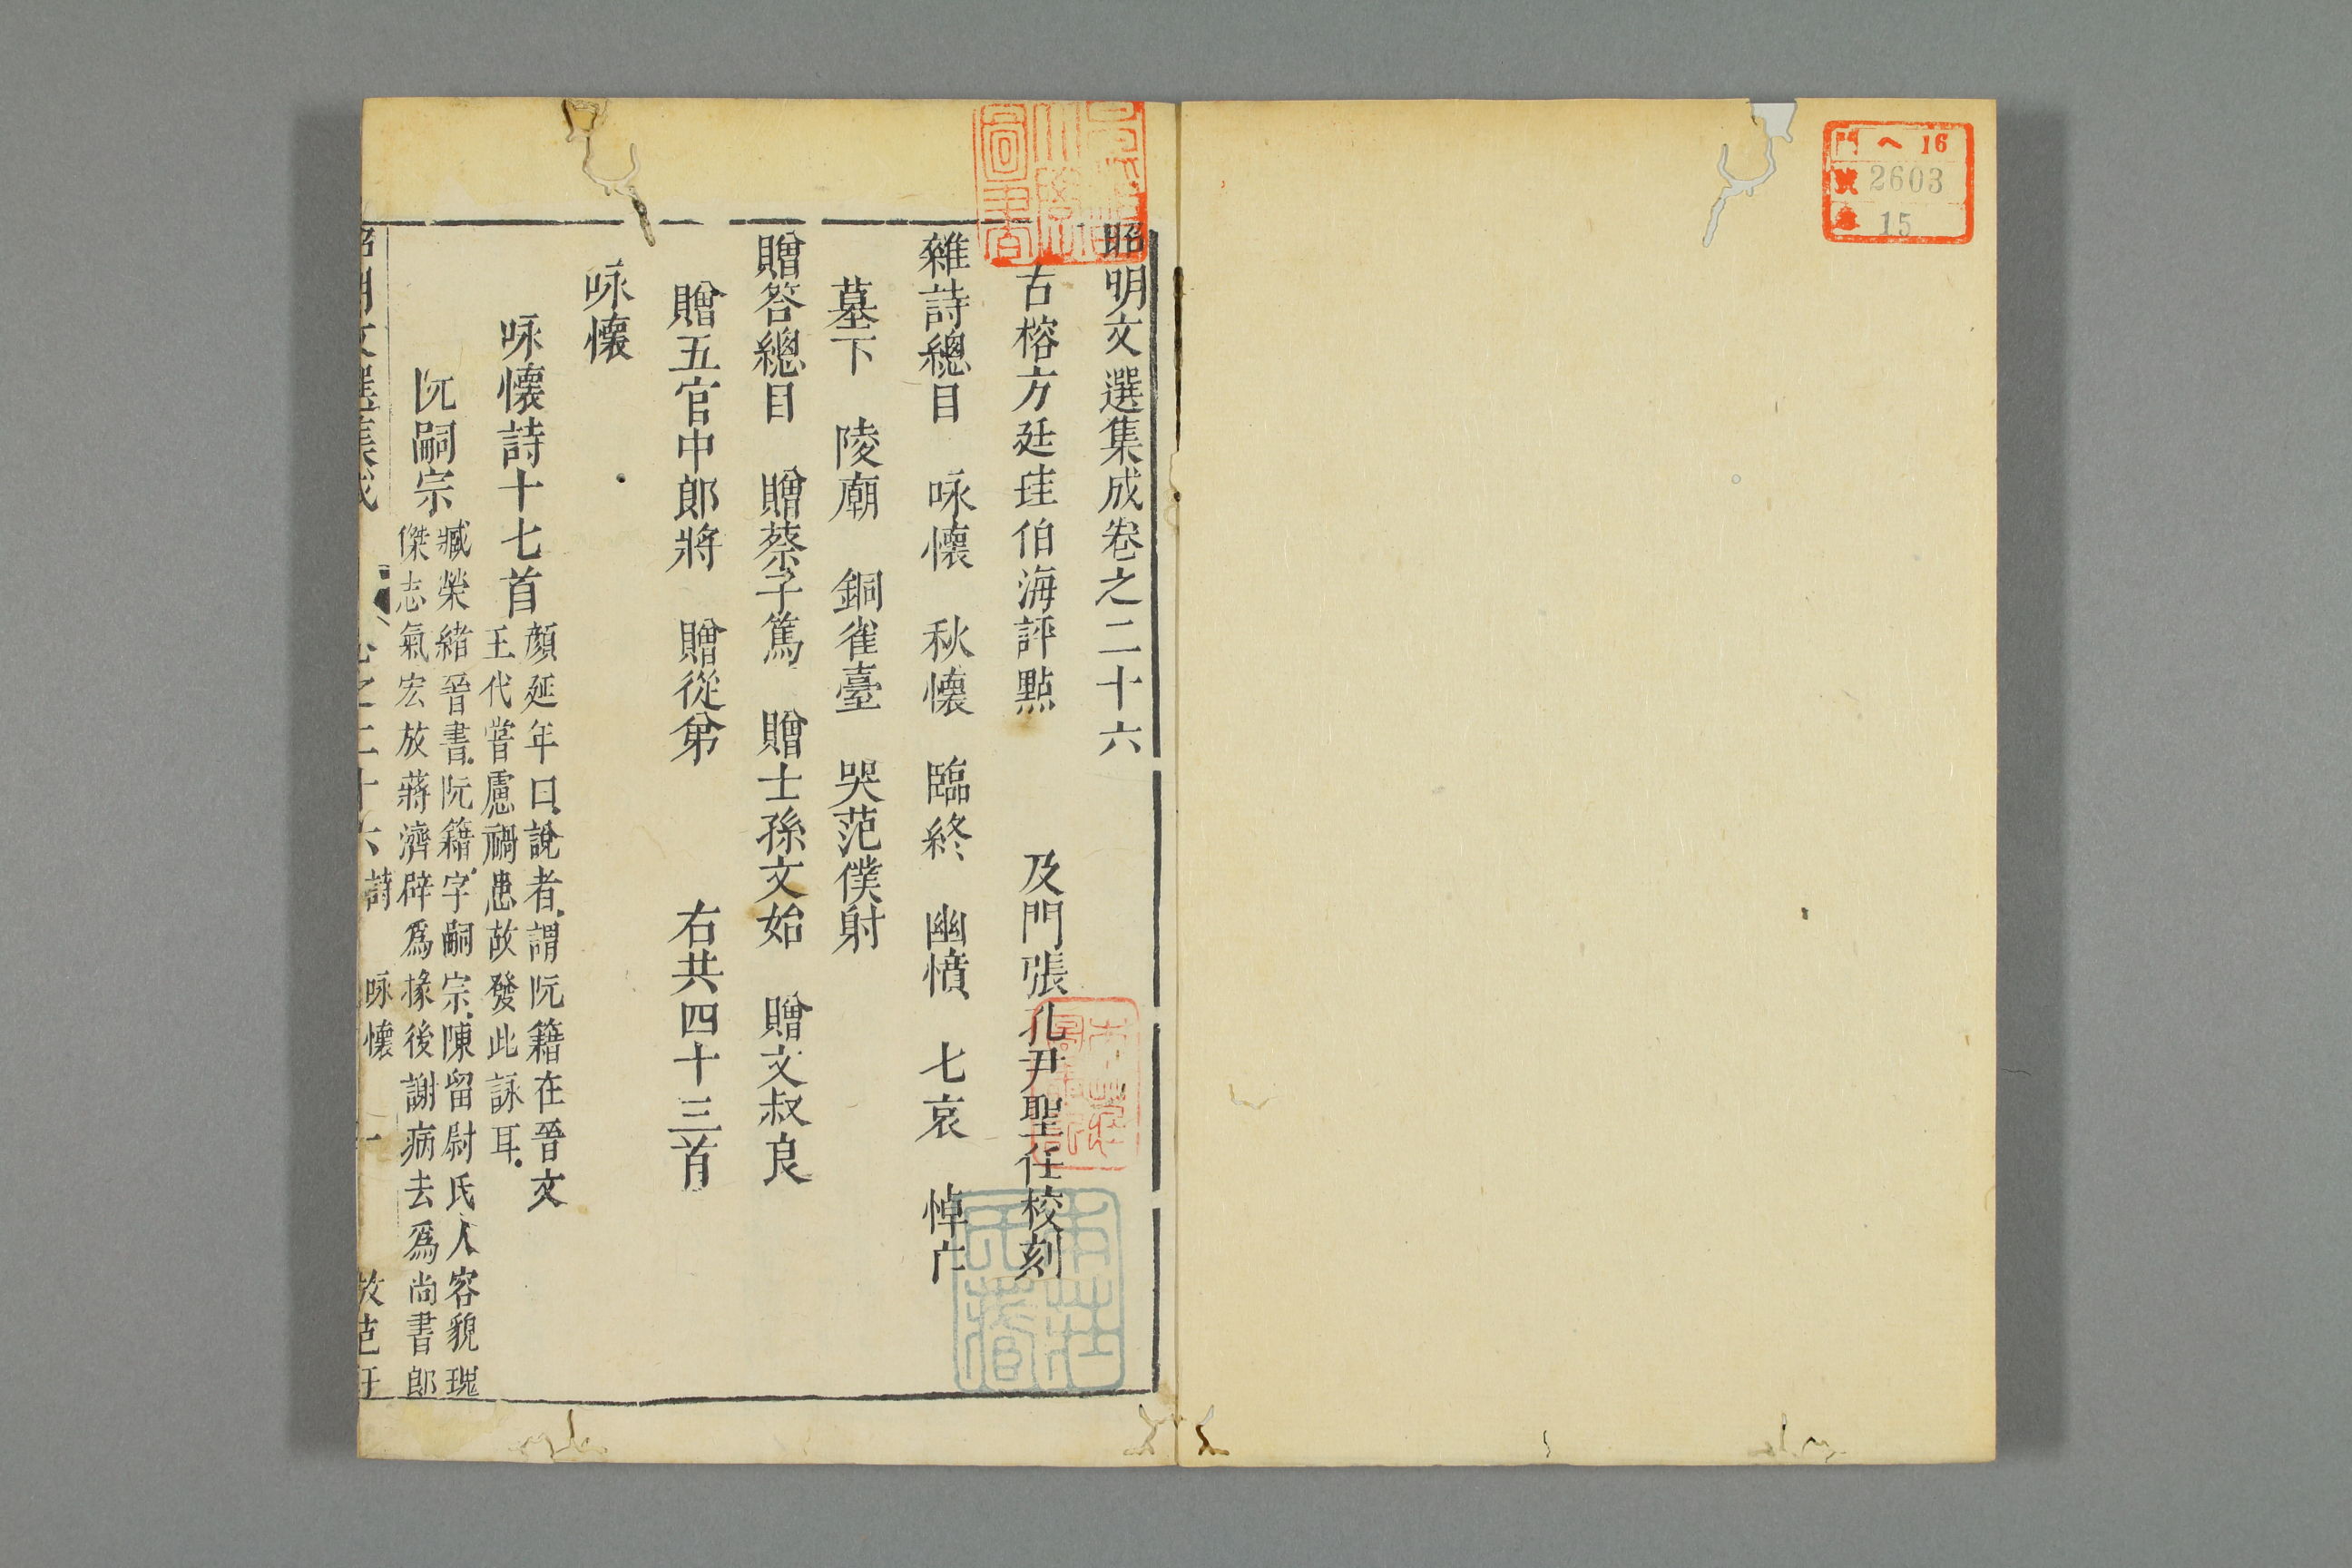 門 ヘ 16
號 2603
卷 15
昭明文選集成卷之二十六
古榕方廷珪伯海評點 及門張孔尹聖任校刻
雜詩總目 咏懷 秋懷 臨終 幽憤 七哀 悼亡
墓下 陵廟 銅雀臺 哭范僕射
贈答總目 贈蔡子篤 贈士孫文始 贈文叔良
贈五官中郎將 贈從弟 右共四十三首
咏懷
咏懷詩十七首 顏延年曰說者謂阮籍在晉文
王代嘗慮禍患故發此詠耳
阮嗣宗 臧榮緒晉書阮籍字嗣宗陳留尉氏人容貌瑰
傑志氣宏放蔣濟辟爲掾後謝病去爲尚書郎
昭明文選集成 卷之二十六 詩 咏懷 一